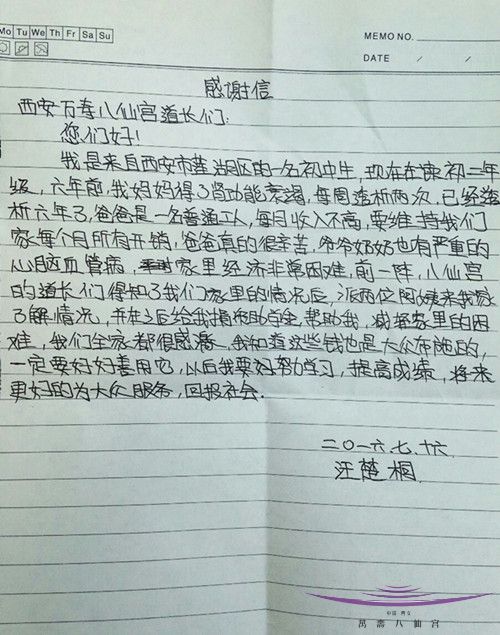 Mo Tu We Th Fr Sa Su
MEMO NO.
DATE / /
感谢信
西安万寿八仙宫道长们:
您们好!
我是来自西安市莲湖区的一名初中生,现在在读初二年
级,六年前,我妈妈得了肾功能衰竭,每周透析两次,已经透
析六年了,爸爸是一名普通工人,每月收入不高,要维持我们
家每个月所有开销,爸爸真的很辛苦,爷爷奶奶也有严重的
心脑血管病,家里经济非常困难,前一阵,八仙宫
的道长们得知了我们家里的情况后,派两位阿姨来我家
了解情况,并在之后给我捐布助学金帮助我,减轻家里的困
难,我们全家都很感激,我知道这些钱也是大众布施的,
一定要好好善用它,以后我要好努力学习,提高成绩,将来
更好的为大众服务,回报社会.
二〇一六.七.十六
汪楚桐
中国·西安
萬壽八仙宮